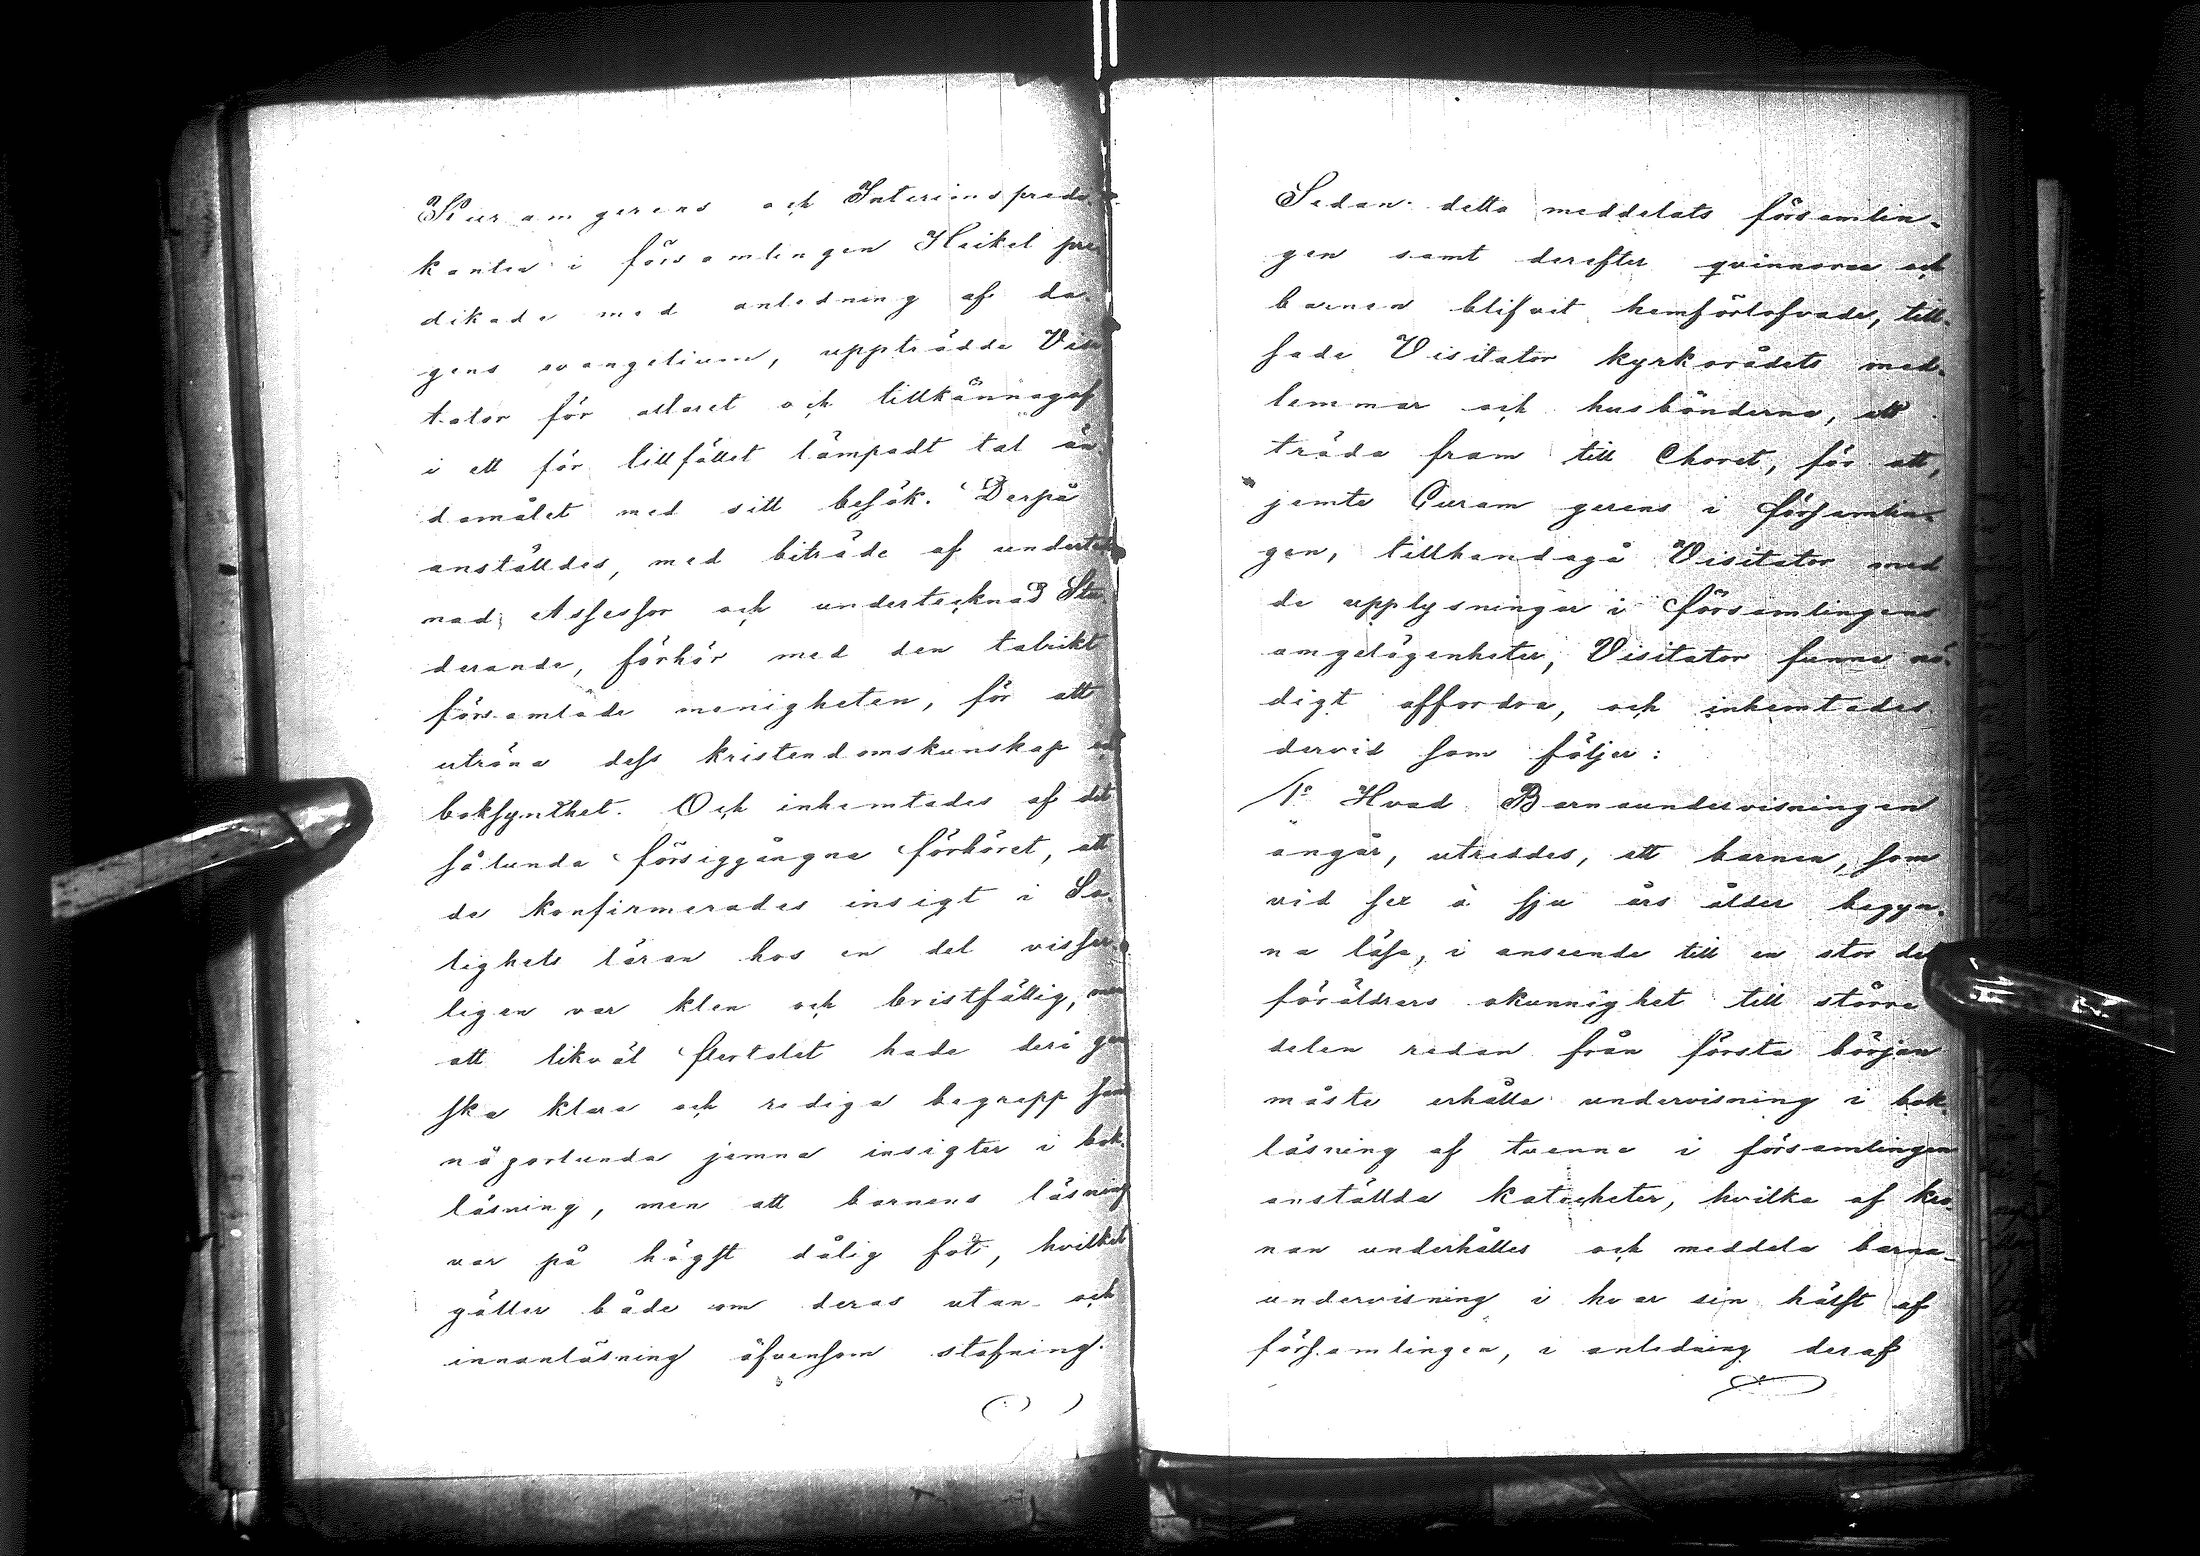 Kuram gerens och Interimspredi-
kanten i församlingen Heikel pre-
dikade med anledning af da-
gens evangelium, uppträdde Visi
tator för altaret och tillkännagaf
i ett för tillfället lämpadt tal än-
damålet med sitt besök. Derpå
anställdes, med biträde af underteck
nad Assessor och undertecknad Stu-
derande, förhör med den talrikt
församlade menigheten, för att
utröna dess kristendomskunskap och
boksynthet. Och inhemtades af det
sålunda försiggångna förhöret, att
de konfirmerades insigt i Sa-
lighets läran hos en del visser-
ligen var klen och bristfällig, men
att likväl flertalet hade deri gan
ska klara och rediga begrepp samt
någorlunda jemna insigter i bok-
läsning, men att barnens läsning
var på högst dålig fot, hvilket
gäller både om deras utan- och
innanläsning äfvensom stafning.
Sedan detta meddelats församlin-
gen samt derefter qvinnorna och
barnen blifvit hemförlofvade, till-
sade Visitator kyrkorådets med-
lemmar och husbönderna, att
träda fram till Choret, för att,
jemte Curam gerens i församlin-
gen, tillhandagå Visitator med
de upplysningar i församlingens
angelägenheter, Visitator funne nö-
digt affordra, och inhemtades
dervid som följer:
1o Hvad Barnaundervisningen
angår, utreddes, att barnen, som
vid sex à sju års ålder begyn-
na läsa, i anseende till en stor del
föräldrars okunnighet till större
delen redan från första början
måste erhålla undervisning i bok-
läsning af tvenne i församlingen
anställda katecheter, hvilka af kro-
nan underhålles och meddela barna-
undervisning i hvar sin hälft af
församlingen, i anledning deraf